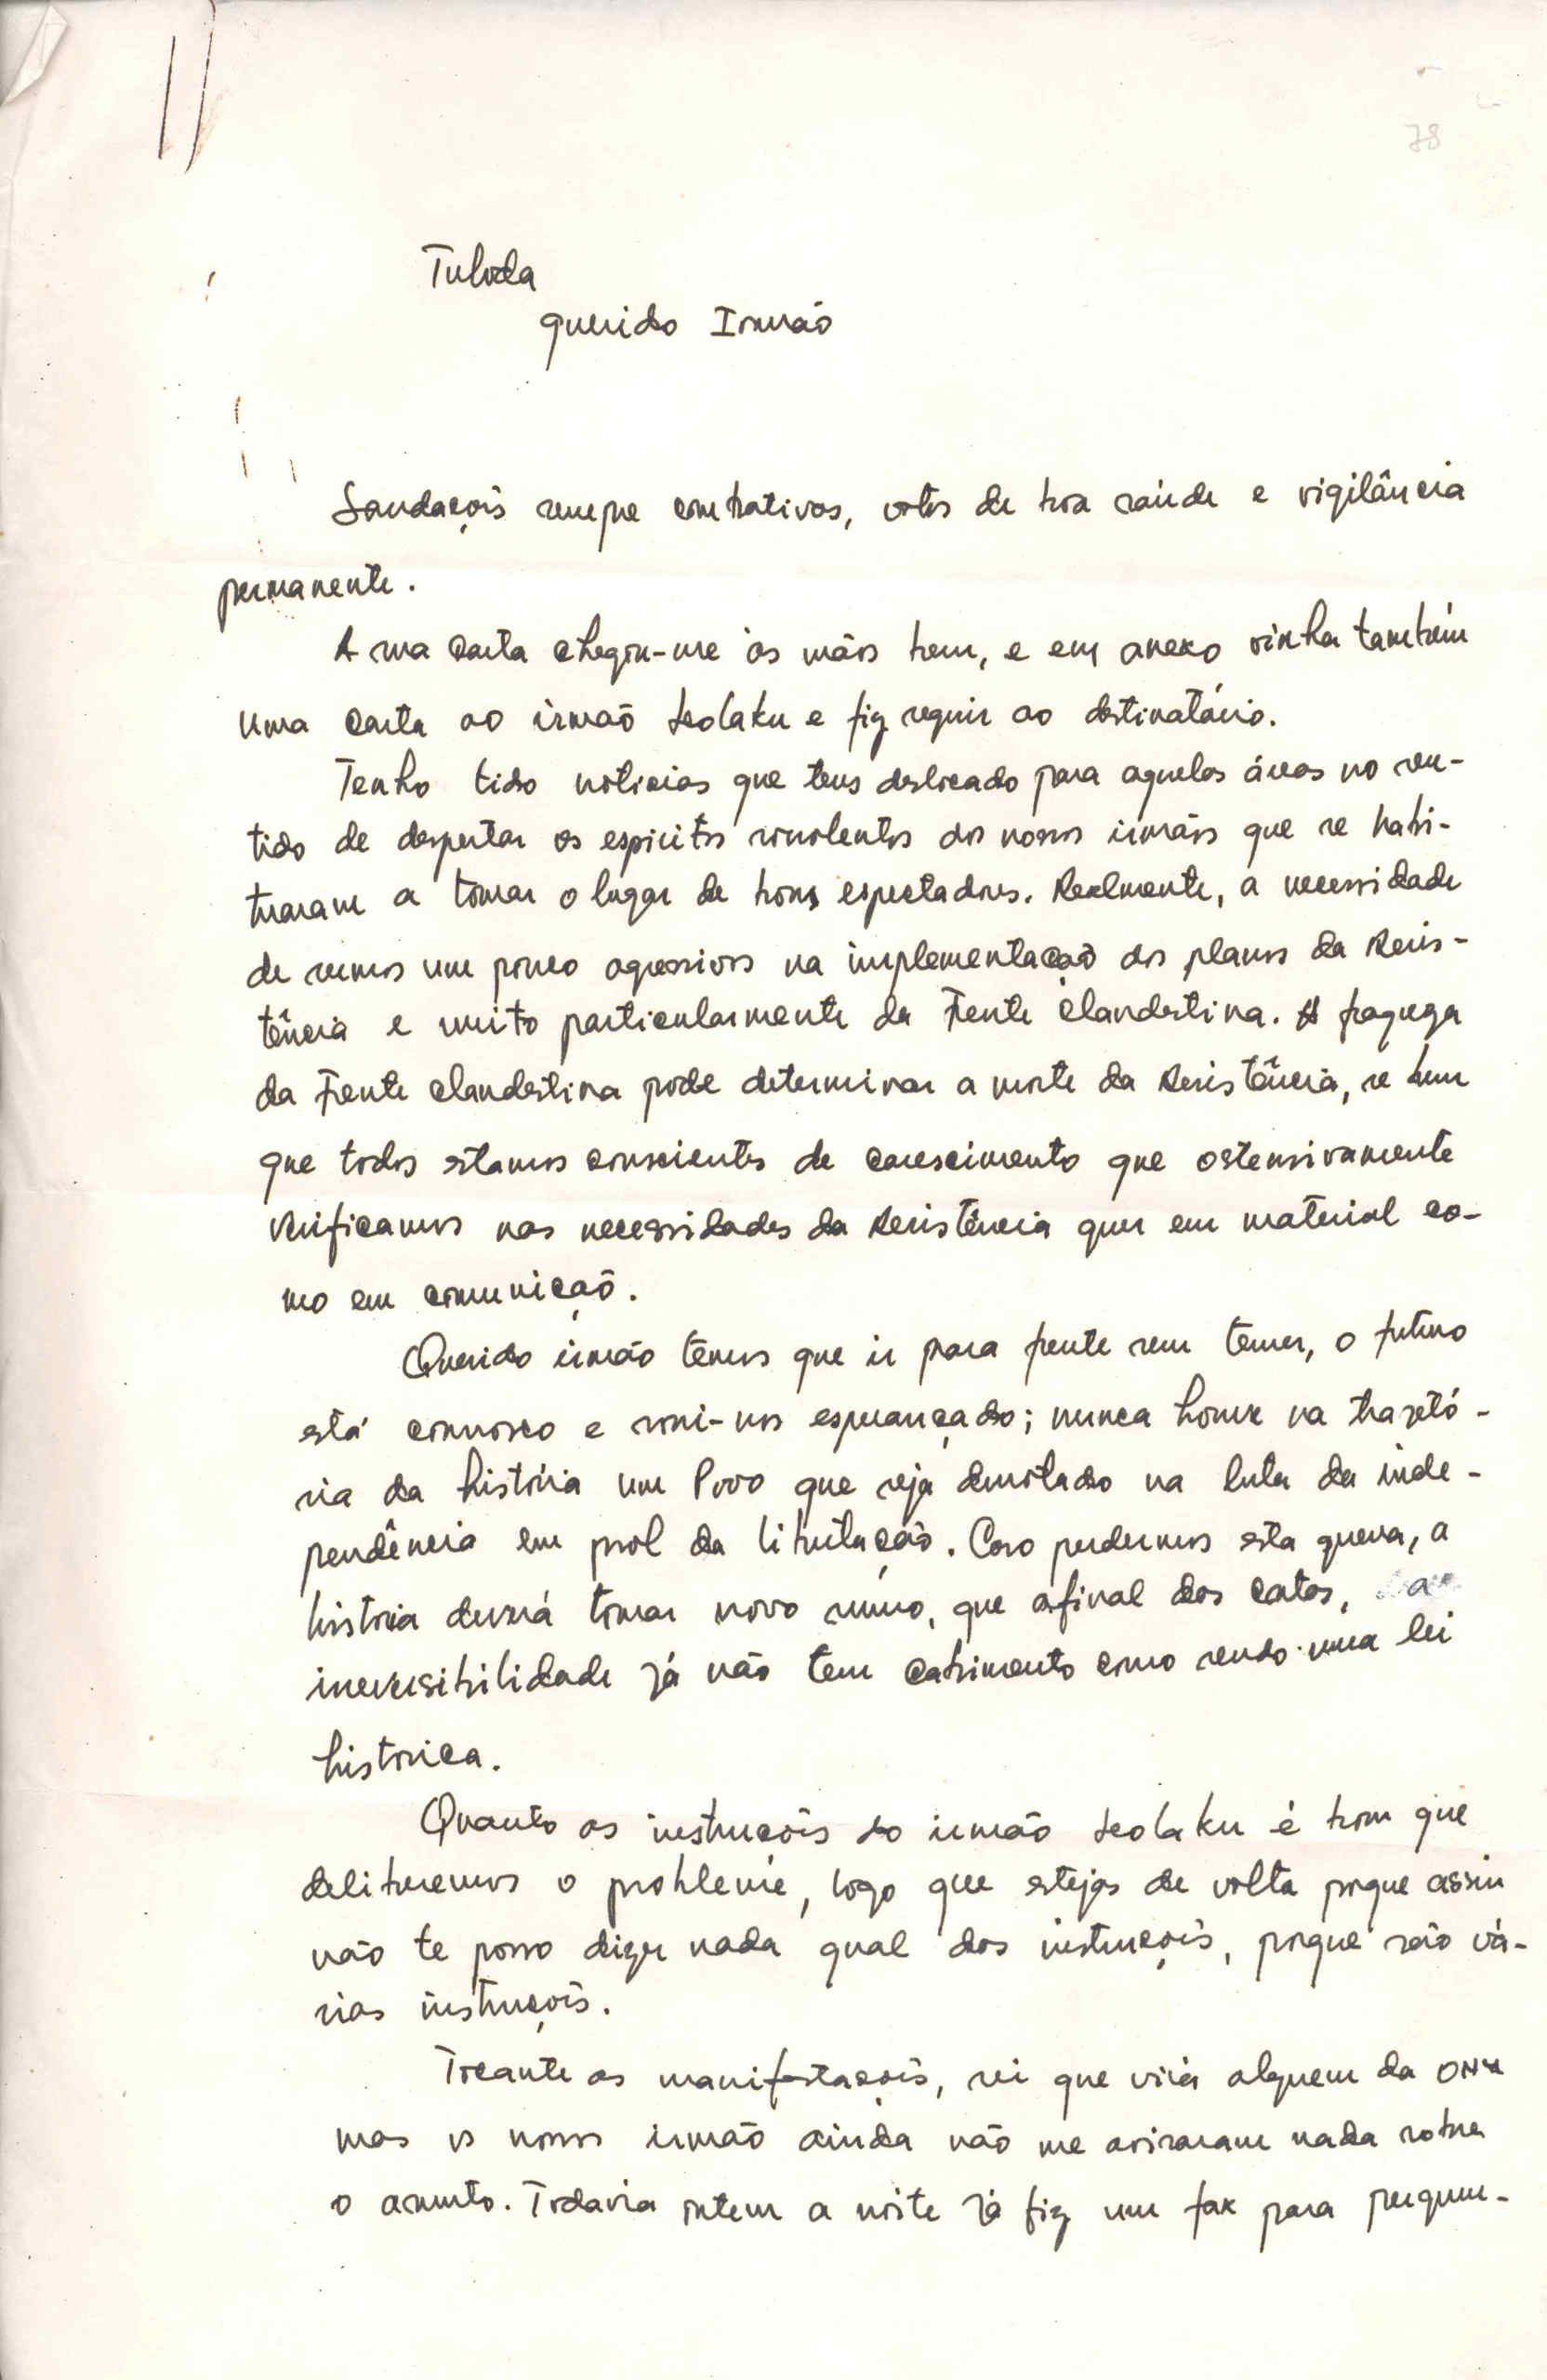 78
Tuloda
querido Irmão
Saudaçois sempre combativas, votos de boa saúde e vigilância
permanente.
A sua carta chegou-me às mãos bem, e em anexo vinha também
uma carta ao irmão Leolaku e fiz seguir ao destinatário.
Tenho tido noticias que tens deslicado para aquelas áreas no sen-
tido de despertar os espiritos sonolentos dos nossos irmãos que se habi-
tuaram a tomar o lugar de bons espectadores. Realmente, a necessidade
de sermos um pouco agressivos na implementação dos planos da Resis-
tência e muito particularmente da Frente Clandestina. A fraqueza
da Frente Clandestina pode determinar a morte da Resistência, se bem
que todos estamos conscientes de carescimento que ostensivamente
verificamos nas necessidades da Resistência quer em material co-
mo em comunicação.
Querido irmão temos que ir para frente sem temer, o futuro
está connosco e sorri-nos esperançado; nunca houve na trajetó-
ria da história um Povo que seja derrotado na luta da inde-
pendência em prol da libertação. Caso perdermos esta guerra, a
historia deverá tomar novo rumo, que afinal das contas, a
ineversibilidade já não tem cabimento como sendo uma lei
historica.
Quanto as instruçois do irmão Leolaku é bom que
deliberemos o probleme, logo que estejas de volta porque assim
não te posso dizer nada qual das instruçois, porque são vá-
rias instruçois.
Tocante as manifestaçois, sei que virá alguem da ONU
mas os nossos irmão ainda não me avisaram nada sobre
o assunto. Todavia ontem a noite já fiz um fax para pergun-